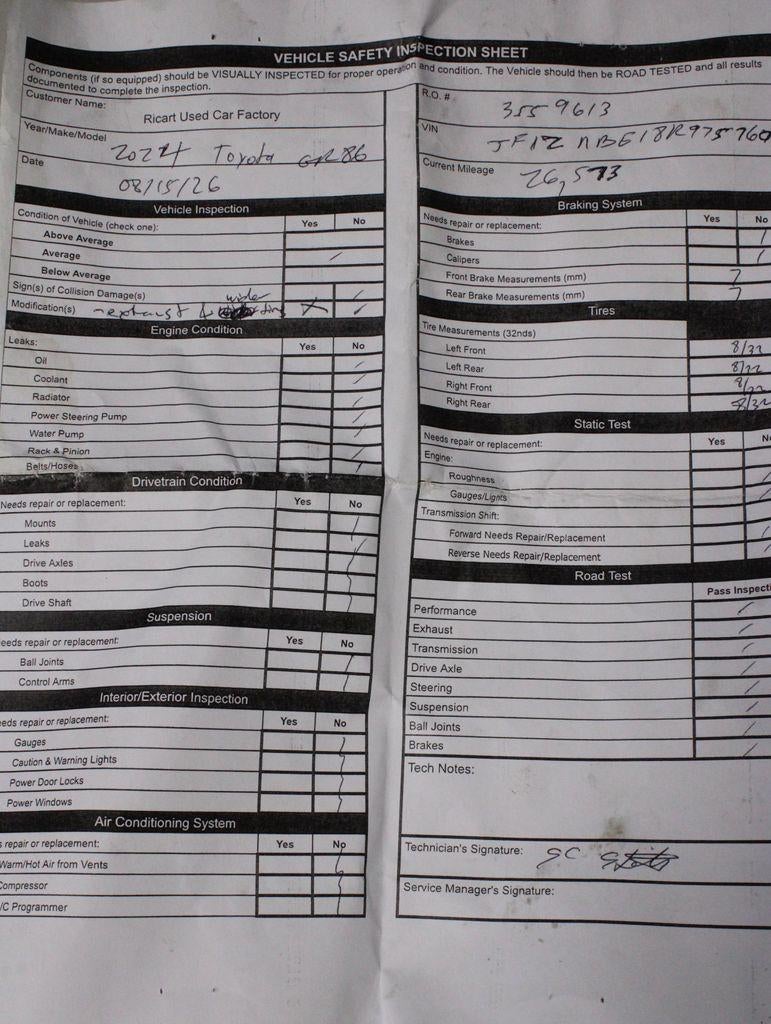 VEHICLE SAFETY INSPECTION SHEET
Components (if so equipped) should be VISUALLY INSPECTED for proper operation and condition. The Vehicle should then be ROAD TESTED and all results
documented to complete the inspection.
Customer Name:
Ricart Used Car Factory
Year/Make/Model
2024 Toyota GR86
Date
08/15/26
Vehicle Inspection
Condition of Vehicle (check one): Yes No
Above Average
Average
Below Average
Sign(s) of Collision Damage(s)
Modification(s) exhaust & wider
Engine Condition
Leaks: Yes No
Oil
Coolant
Radiator
Power Steering Pump
Water Pump
Rack & Pinion
Belts/Hoses
Drivetrain Condition
Needs repair or replacement: Yes No
Mounts
Leaks
Drive Axles
Boots
Drive Shaft
Suspension
eeds repair or replacement: Yes No
Ball Joints
Control Arms
Interior/Exterior Inspection
eds repair or replacement: Yes No
Gauges
Caution & Warning Lights
Power Door Locks
Power Windows
Air Conditioning System
s repair or replacement: Yes No
Warm/Hot Air from Vents
Compressor
/C Programmer
R.O. #
3559613
VIN
JF1ZNBE18R975760
Current Mileage
26,573
Braking System
Needs repair or replacement: Yes No
Brakes
Calipers
Front Brake Measurements (mm) 7
Rear Brake Measurements (mm) 7
Tires
Tire Measurements (32nds)
Left Front 8/32
Left Rear 8/32
Right Front 8/32
Right Rear 8/32
Static Test
Needs repair or replacement: Yes N
Engine:
Roughness
Gauges/Lights
Transmission Shift:
Forward Needs Repair/Replacement
Reverse Needs Repair/Replacement
Road Test
Pass Inspecti
Performance
Exhaust
Transmission
Drive Axle
Steering
Suspension
Ball Joints
Brakes
Tech Notes:
Technician's Signature: SC
Service Manager's Signature: